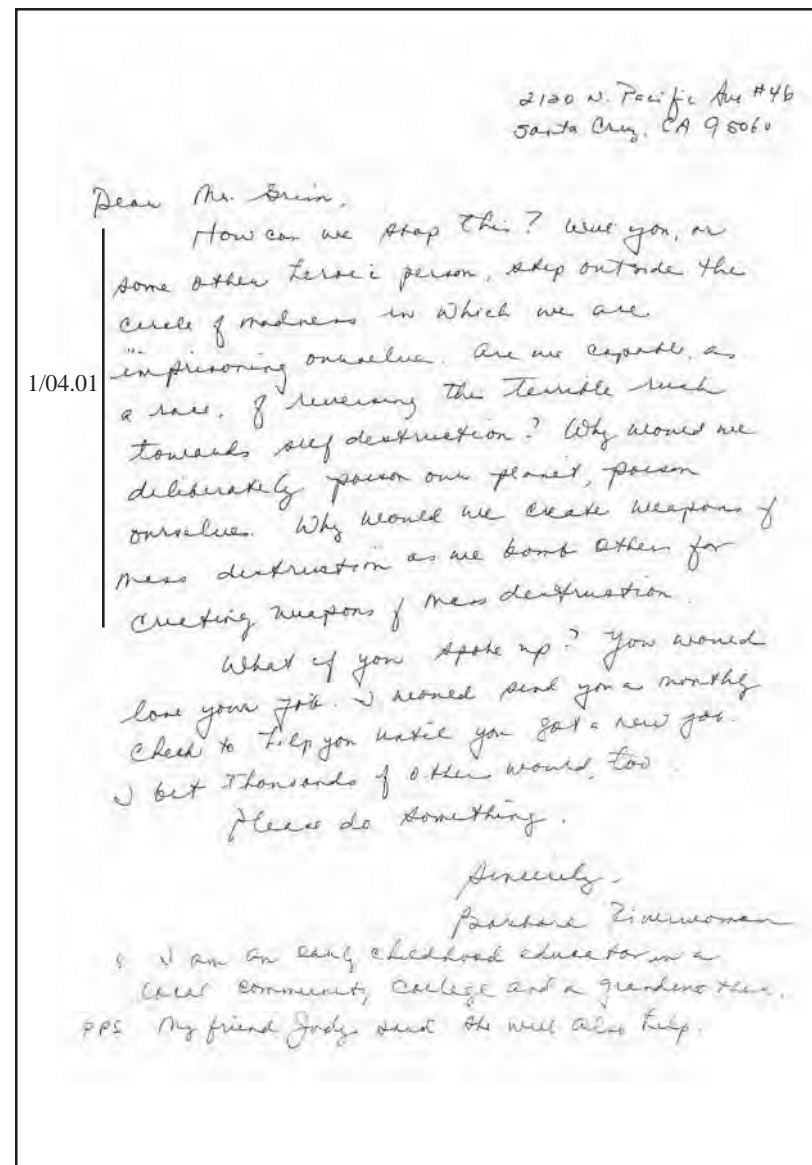 2120 N. Pacific Ave #46
Santa Cruz, CA 95060
Dear Mr. Grim,
How can we stop this? Will you, or
some other heroic person, step outside the
circle of madness in which we are
imprisoning ourselves. Are we capable, as
1/04.01
a race, of reversing the terrible rush
towards self destruction? Why would we
deliberately poison our planet, poison
ourselves. Why would we create weapons of
mass destruction as we bomb others for
creating weapons of mass destruction.
What if you spoke up? You would
lose your job. I would send you a monthly
check to help you until you got a new job.
I bet thousands of others would, too.
Please do something.
Sincerely,
Barbara
I am an early childhood educator in a
local community college and a grandmother.
PPS My friend Judy said she will also help.